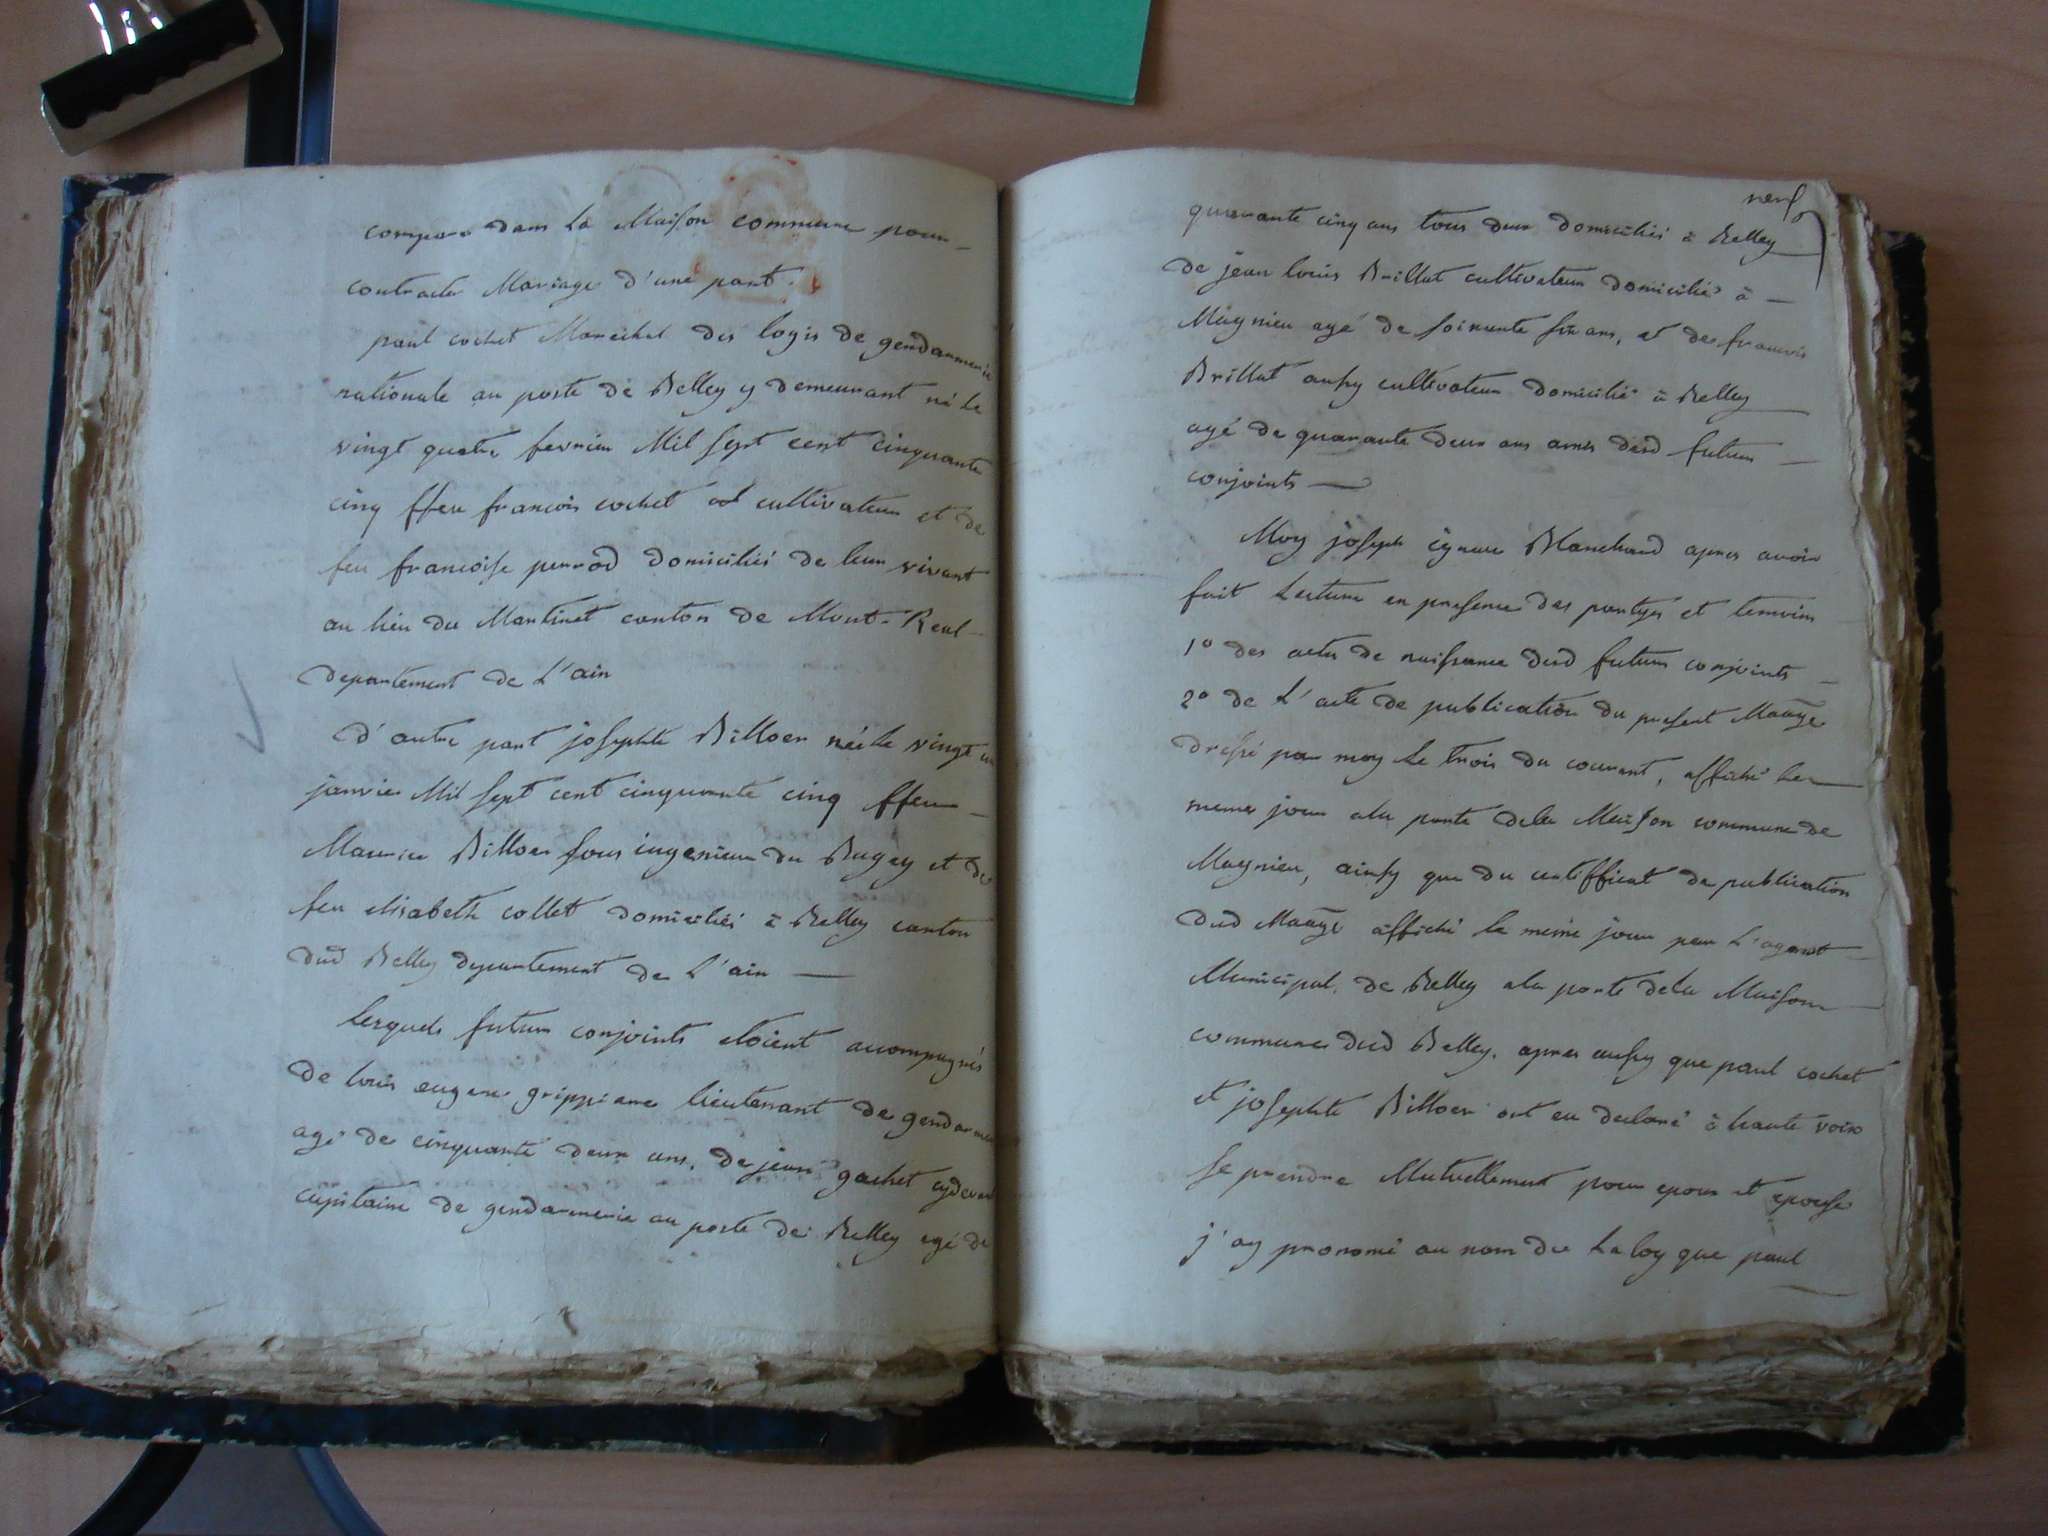 comparu dans La Maison commune pour
contracter Mariage d'une part.
paul cochet Marechal des logis de gendarmerie
nationale au poste de Belley y demeurant né le
vingt quatre fevrier Mil Sept cent cinquante
cinq ffeu francois cochet cultivateur et de
feu francoise perrod domiciliés de leur vivant
au lieu du Martinet canton de Mont-Real
departement de L'ain
D'autre part josephte Billoer née le vingt un
janvier Mil sept cent cinquante cinq ffeu
Maurice Billoer sous ingenieur du Bugey et de
feu elisabeth collet domiciliés à Belley canton
dud Belley departement de L'ain
Lesquels futurs conjoints etoient accompagnés
de louis eugene lieutenant de gendarmerie
agé de cinquante deux ans, de jean gachet cydevant
capitaine de gendarmerie au poste de Belley agé de
neuf
quarante cinq ans tous deux domiciliés à Belley
de jean louis Brillat cultivateur domicilié à
Magnieu agé de soixante six ans, et de francois
Brillat aussy cultivateur domicilié à Belley
agé de quarante deux ans amis desd futurs
conjoints
Moy joseph ignace Blanchard apres avoir
fait Lecture en presence des partyes et temoins
1° des actes de naissance desd futurs conjoints
2° de L'acte de publication du present Maãge
dressé par moy le trois du courant, affiché le
meme jour a la porte dela Maison commune de
Magnieu, ainsy que du certifficat de publication
dud Maãge affiché le meme jour par L'agent
Municipal de Belley a la porte dela Maison
commune dud Belley. apres aussy que paul cochet
et josephte Billoer ont eu declaré à haute voix
se prendre Mutuellement pour epoux et epouse
j'ay prononcé au nom de La loy que paul